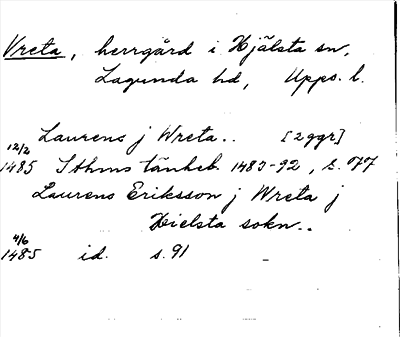 Vreta, herrgård i Hjälsta sn,
Lagunda hd, Upps. l.
Laurens j Wreta.. [2 ggr]
12/2 1485 Sthms tänkeb. 1483-92, s. 77
Laurens Eriksson j Wreta j
Hielsta sokn..
4/6 1485 id. s. 91